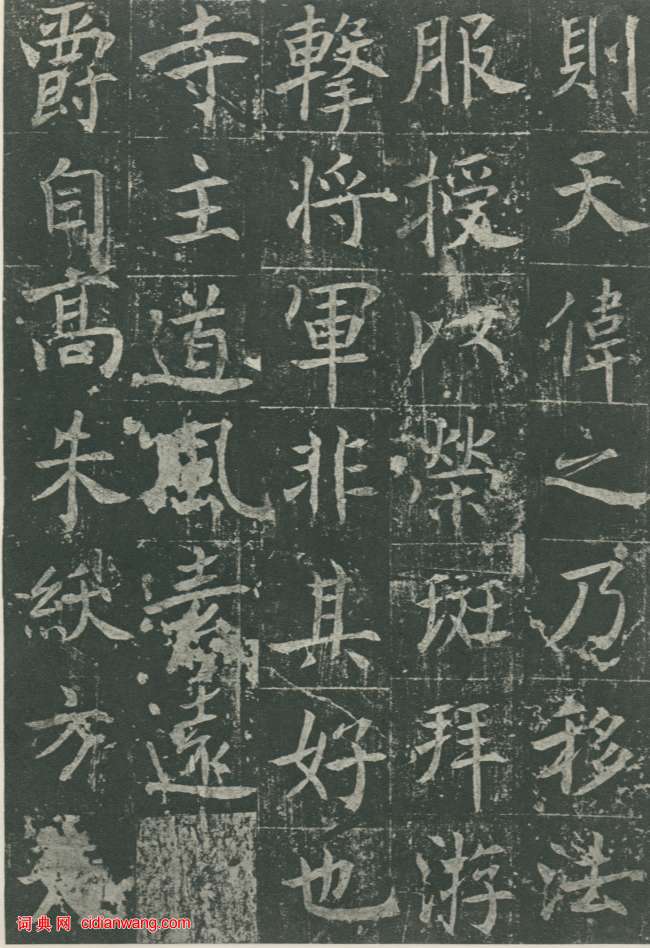 則天偉之乃移法
服授以榮班拜游
擊將軍非其好也
寺主道風素遠
爵自高朱紱方
词典网 cidianwang.com